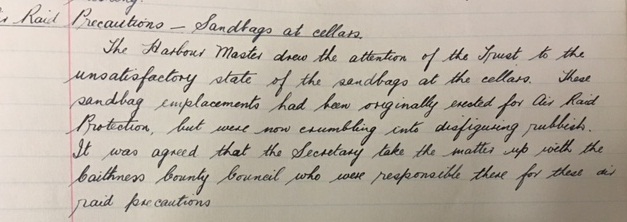 Raid Precautions – Sandbags at cellars.
The Harbour Master drew the attention of the Trust to the
unsatisfactory state of the sandbags at the cellars. These
sandbag emplacements had been originally erected for Air Raid
Protection, but were now crumbling into disfiguring rubbish.
It was agreed that the Secretary take the matter up with the
Caithness County Council who were responsible there for these air
raid precautions